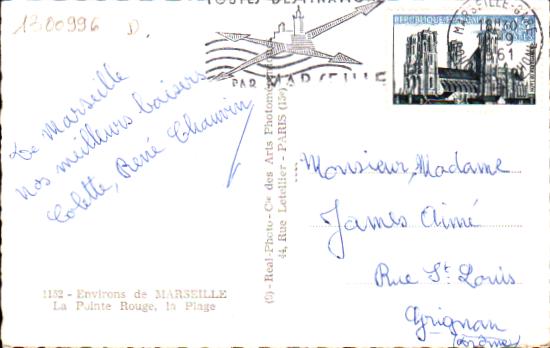 1300996 D.
TOUTES DESTINATIONS
PAR MARSEILLE
MARSEILLE-GA
18H30
9
1961
De Marseille
nos meilleurs baisers
Colette, René Chauvin
1152 - Environs de MARSEILLE
La Pointe Rouge, la Plage
(S) - Real-Photo - Cie des Arts Photomé
44, Rue Letellier - PARIS (15e)
Monsieur, Madame
James Aimé
Rue St Louis
Grignan
(Drôme)